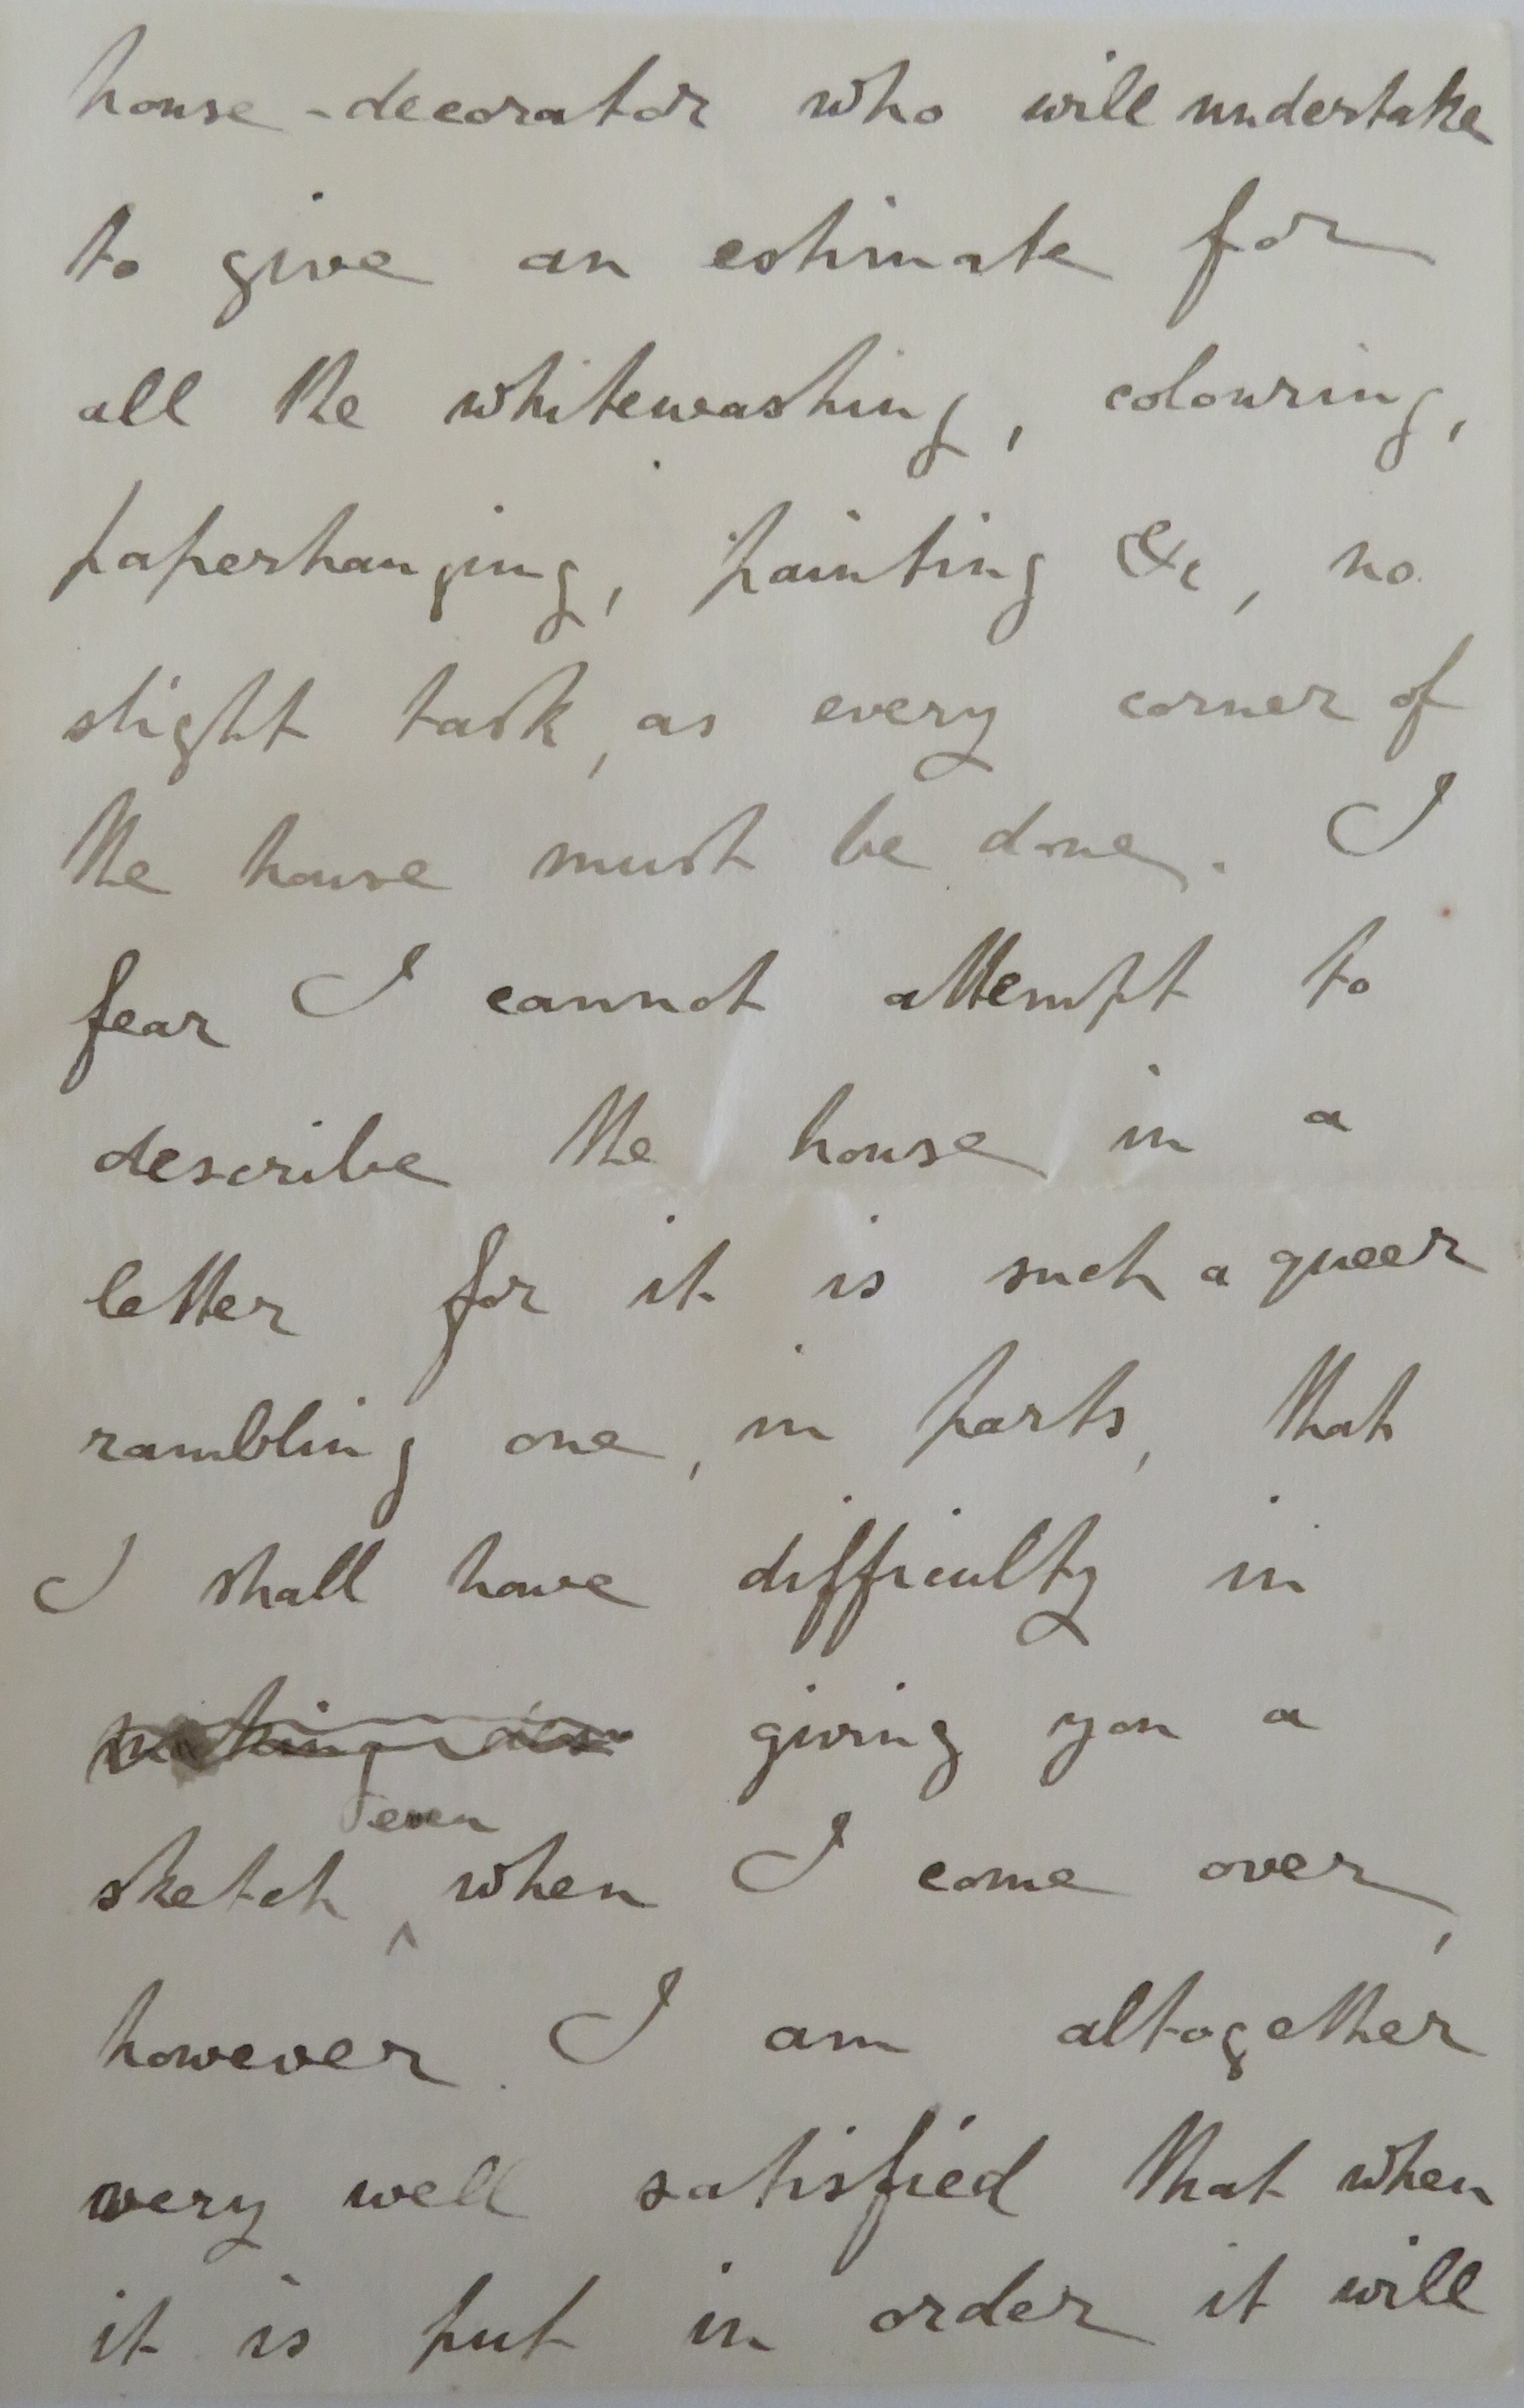 house-decorator who will undertake
to give an estimate for
all the whitewashing, colouring,
paperhanging, painting &c, no
slight task, as every corner of
the house must be done. I
fear I cannot attempt to
describe the house in a
letter for it is such a queer
rambling one, in parts, that
I shall have difficulty in
giving you a
even
sketch ^ when I come over,
however. I am altogether
very well satisfied that when
it is put in order it will